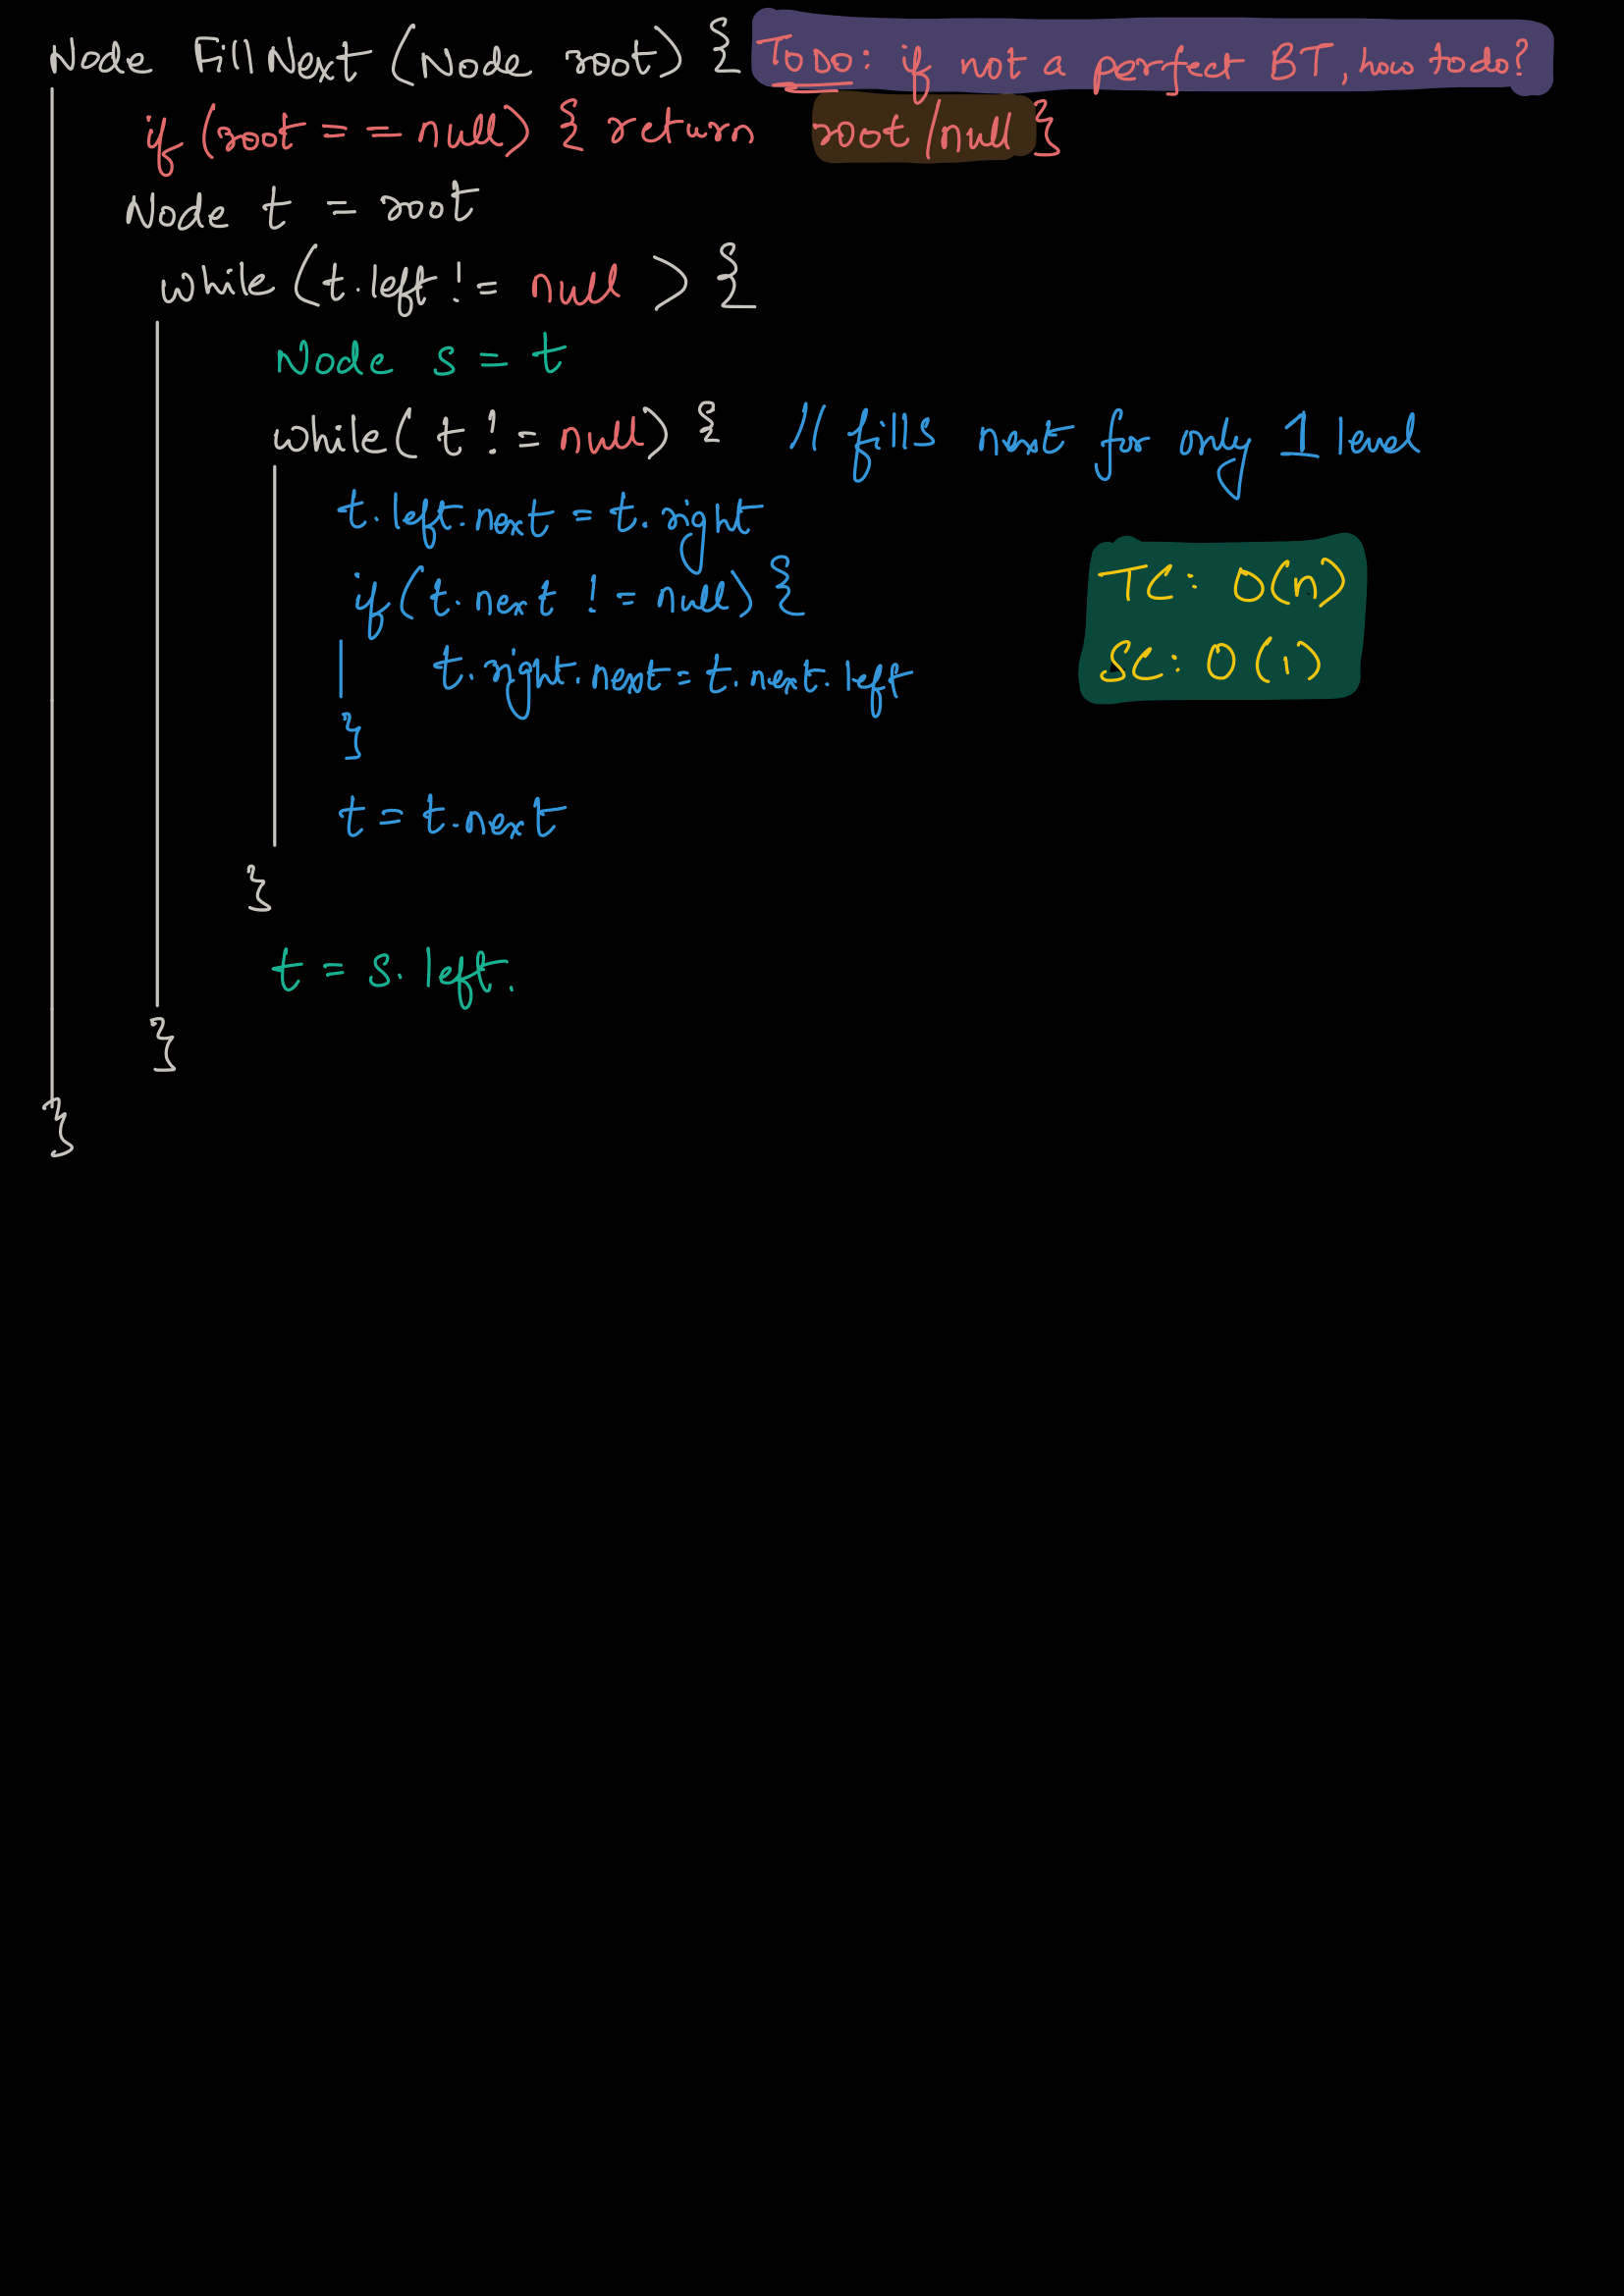 Node FillNext (Node root) { TODO: if not a perfect BT, how to do?
if (root == null) { return root/null }
Node t = root
while (t.left != null ) {
Node s = t
while( t != null) { // fills next for only 1 level
t.left.next = t.right
if (t.next != null) {
TC: O(n)
t.right.next = t.next.left
SC: O(1)
}
t = t.next
}
t = s.left.
}
}